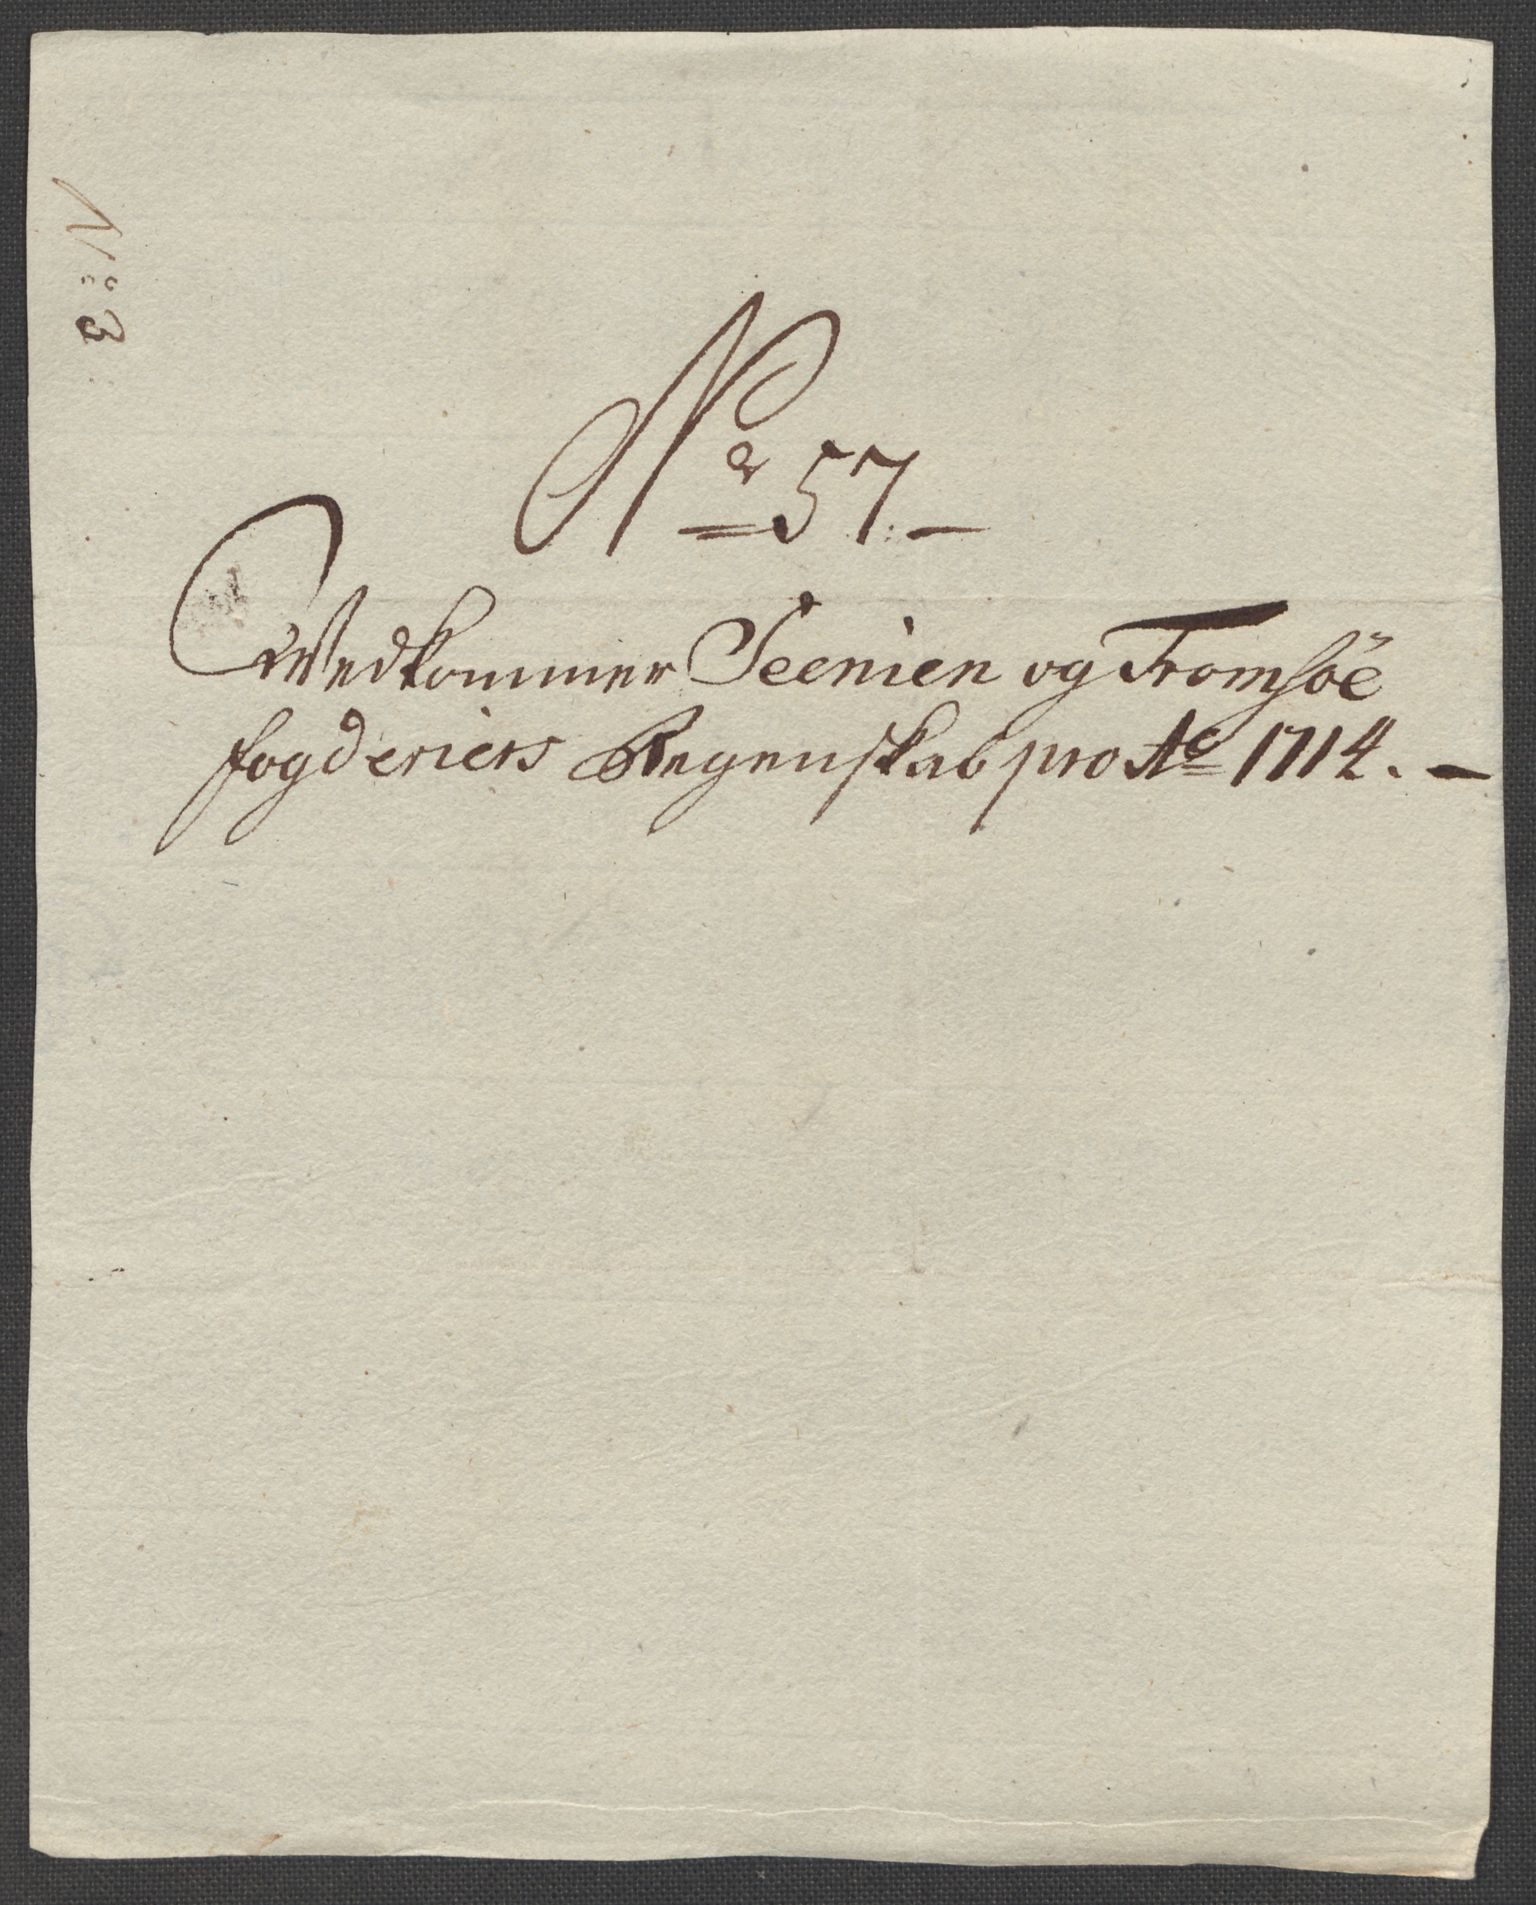 No: 3
No 57.
Wedkommer Seenien og Tromsöe
fogderiers Regenskab pro Ao 1714.